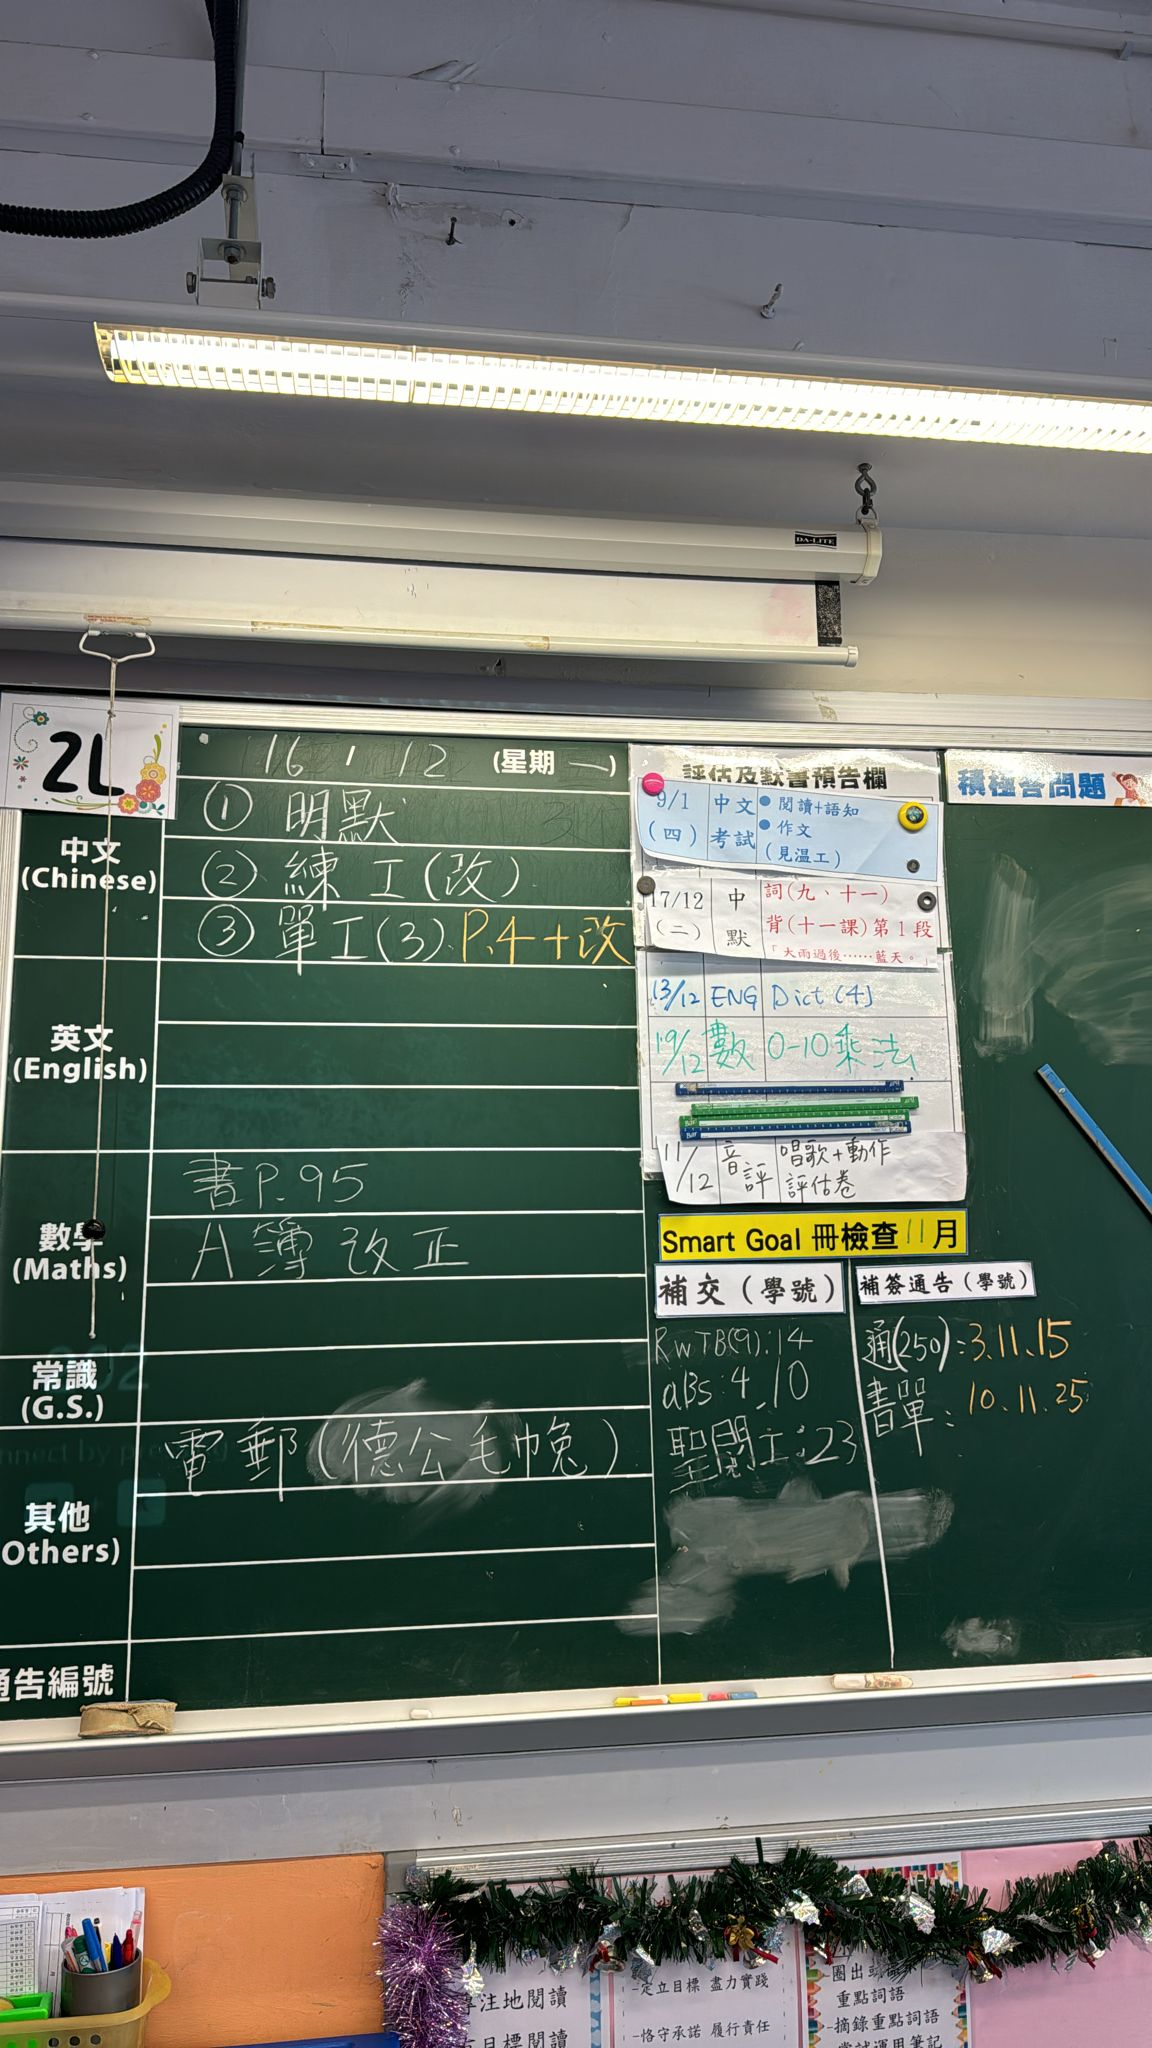 DA-LITE
2L
16 , 12 (星期 一)
中文
(Chinese)
① 明默
② 練工(改)
③ 單工(3) P.4+改
英文
(English)
數學
(Maths)
書P.95
A簿 改正
常識
(G.S.)
其他
(Others)
電郵(德公毛巾兔)
通告編號
評估及默書預告欄
9/1
(四)
中文
考試
● 閱讀+語知
● 作文
(見温工)
17/12
(二)
中
默
詞(九、十一)
背(十一課)第1段
「大雨過後……藍天。」
13/12 ENG Dict (4)
19/12 數 0-10 乘法
11/12 音評 唱歌+動作
評估卷
Smart Goal 冊檢查 11月
補交(學號)
RWTB(9):14
aBs:4.10
聖閱工:23
補簽通告(學號)
通(250):3.11.15
書單: 10.11.25
積極答問題
注地閱讀
目標閱讀
-定立目標 盡力實踐
-恪守承諾 履行責任
-圈出
重點詞語
-摘錄重點詞語